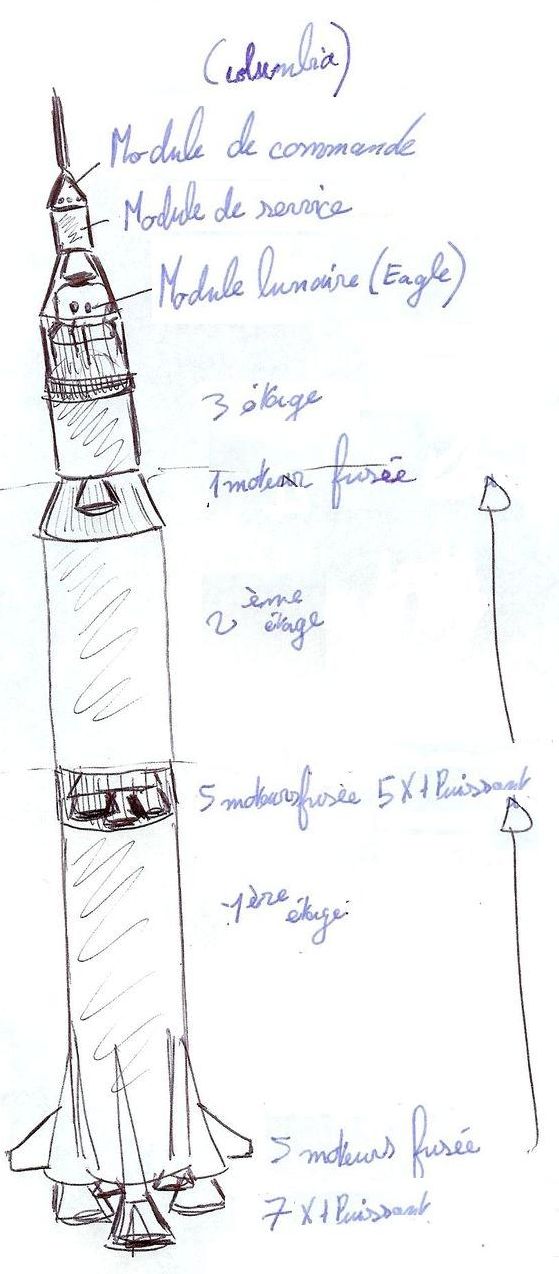 (Columbia)
Module de commande
Module de service
Module lunaire (Eagle)
3 étage
1 moteur fusée
2 ème étage
5 moteurs fusée 5 X + Puissant
1ère étage
5 moteurs fusée
7 X + Puissant